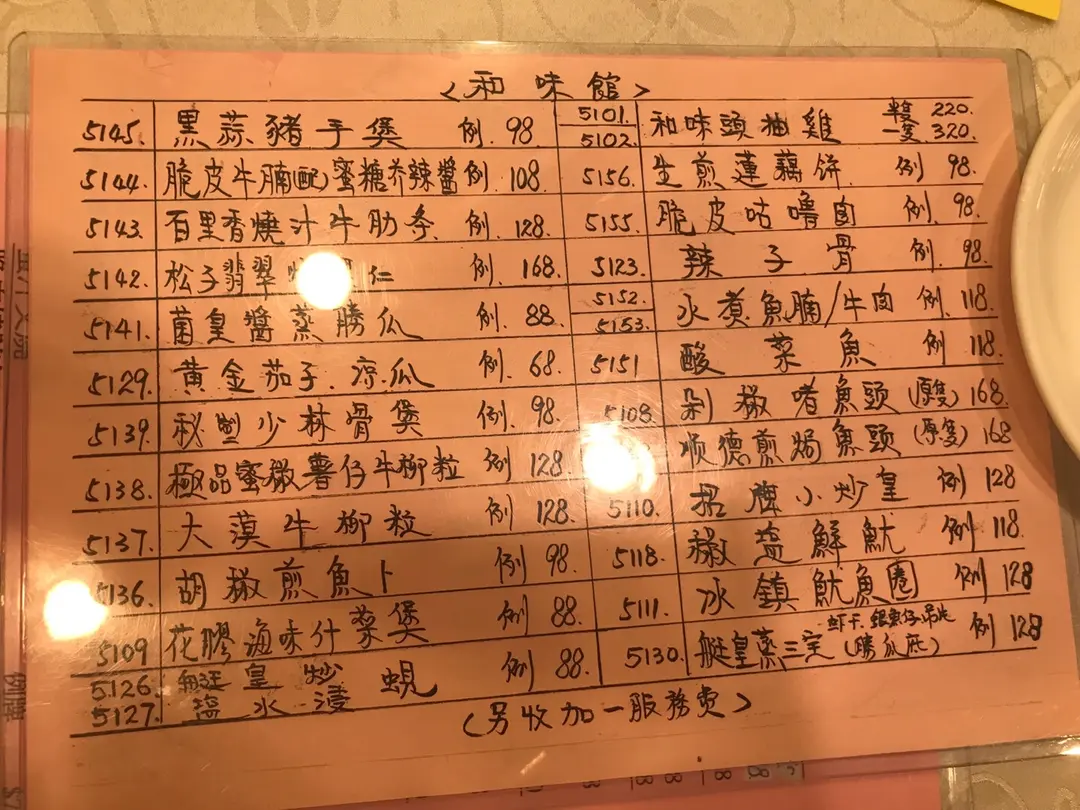 <和味館>
5145. 黑蒜豬手煲 例. 98.
5144. 脆皮牛腩(配)蜜糖芥辣醬 例. 108
5143. 百里香燒汁牛肋条 例. 128.
5142. 松子翡翠 仁 例. 168.
5141. 菌皇醬蒸勝瓜 例. 88.
5129. 黄金茄子.涼瓜 例. 68.
5139. 秘製少林骨煲 例. 98.
5138. 極品蜜椒薯仔牛柳粒 例 128.
5137. 大漠牛柳粒 例 128.
5136. 胡椒煎魚卜 例 98.
5109 花膠海味什菜煲 例 88.
5126. 艇皇炒蜆 例 88.
5127. 塩水浸
5101. 和味頭抽雞 半隻 220.
5102. 一隻. 320.
5156. 生煎蓮藕饼. 例 98.
5155. 脆皮咕嚕肉 例. 98.
5123. 辣子骨 例. 98
5152. 水煮魚腩/牛肉 例. 118.
5153.
5151 酸菜魚 例 118.
5108 剁椒啫魚頭 (原隻) 168.
順德煎焗魚頭 (原隻) 168
5110. 招牌小炒皇 例 128
5118. 椒塩鮮魷 例 118
5111. 冰鎮魷魚圈 例 128
5130. 艇皇蒸三宝 (勝瓜底) 例 128
虾干.銀魚仔.吊片
(另收加一服務費)